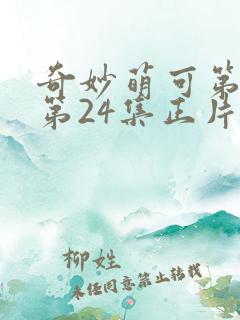 奇妙萌可第
第24集正片
柳姓
未经同意禁止转载